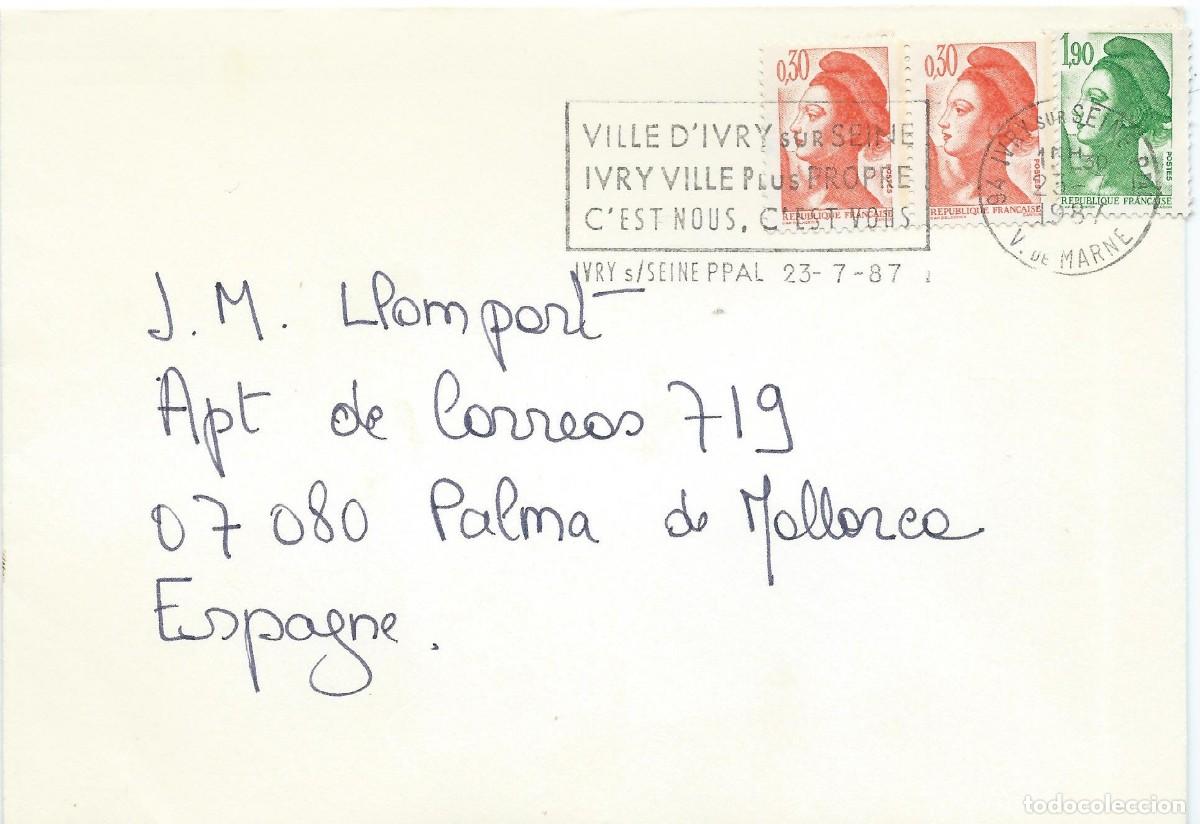 0,30 0,30 1,90
POSTES POSTES POSTES
REPUBLIQUE FRANÇAISE REPUBLIQUE FRANÇAISE REPUBLIQUE FRANÇAISE
VILLE D'IVRY SUR SEINE
IVRY VILLE PLUS PROPRE
C'EST NOUS, C'EST VOUS
IVRY s/SEINE PPAL 23-7-87
94 IVRY SUR SEINE PPAL
1987
V. DE MARNE
J. M. Llompart
Apt de Correos 719
07080 Palma de Mallorca
Espagne.
todocoleccion